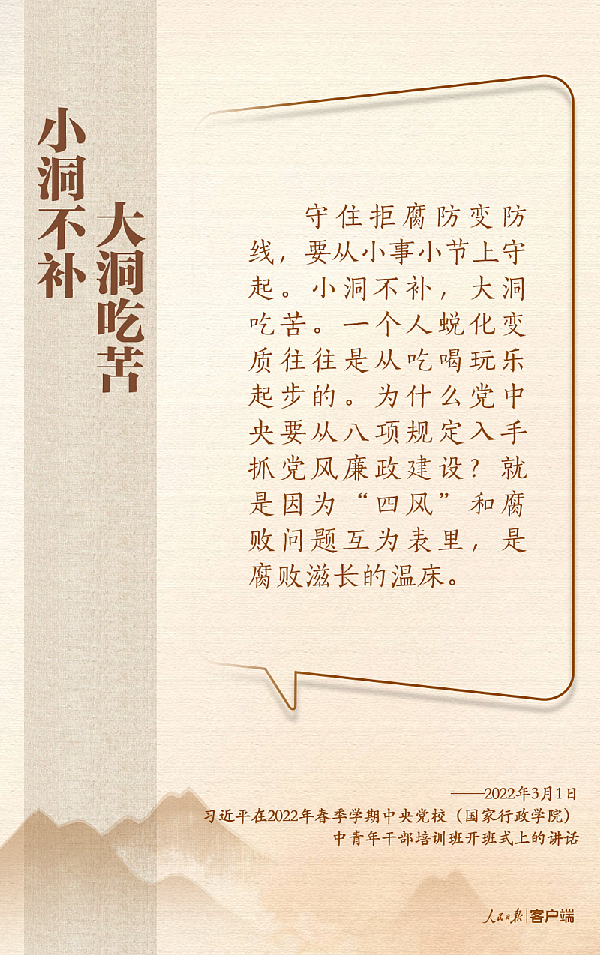 小洞不补
大洞吃苦
守住拒腐防变防
线，要从小事小节上守
起。小洞不补，大洞
吃苦。一个人蜕化变
质往往是从吃喝玩乐
起步的。为什么党中
央要从八项规定入手
抓党风廉政建设？就
是因为“四风”和腐
败问题互为表里，是
腐败滋长的温床。
——2022年3月1日
习近平在2022年春季学期中央党校（国家行政学院）
中青年干部培训班开班式上的讲话
人民日报 客户端